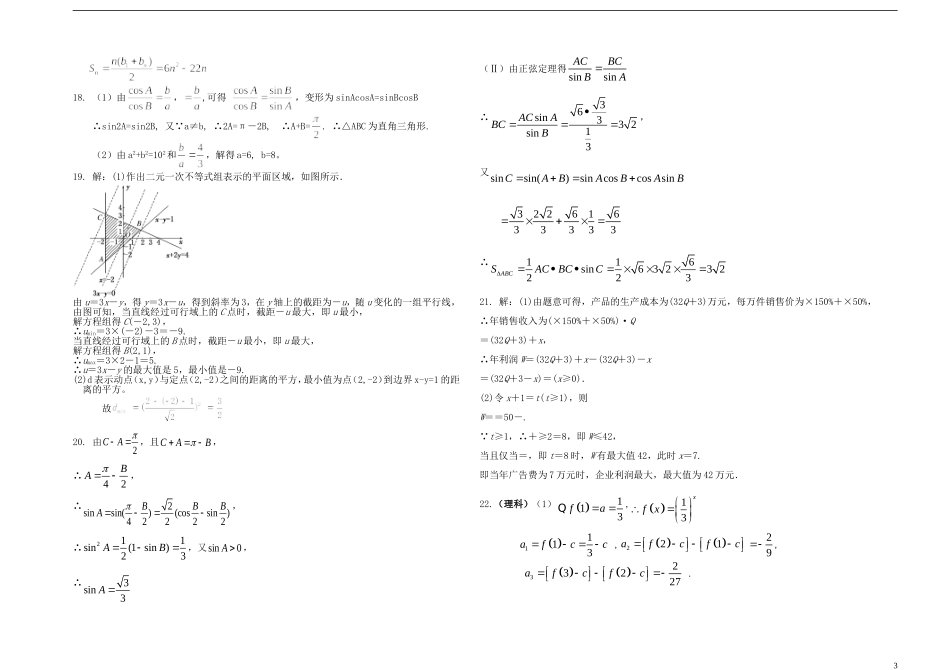 S_n = n(b_1+b_n)/2 = 6n²-22n
18. (1)由 cosA/cosB = b/a, = b/a, 可得 cosA/cosB = sinB/sinA, 变形为 sinAcosA=sinBcosB
∴sin2A=sin2B, 又∵a≠b, ∴2A=π-2B, ∴A+B=π/2. ∴△ABC 为直角三角形.
(2)由 a²+b²=10² 和 b/a=4/3, 解得 a=6, b=8。
19. 解: (1)作出二元一次不等式组表示的平面区域, 如图所示.
y
4
3
2
1
C
B
O
x-y=1
-2 -1
1 2 3 4 x
-1
-2
A
x+2y=4
x=-2
3x-y=0
由 u=3x-y, 得 y=3x-u, 得到斜率为 3, 在 y 轴上的截距为-u, 随 u 变化的一组平行线,
由图可知, 当直线经过可行域上的 C 点时, 截距-u 最大, 即 u 最小,
解方程组得 C(-2,3),
∴u_min=3×(-2)-3=-9.
当直线经过可行域上的 B 点时, 截距-u 最小, 即 u 最大,
解方程组得 B(2,1),
∴u_max=3×2-1=5.
∴u=3x-y 的最大值是 5, 最小值是-9.
(2)d 表示动点(x,y)与定点(2,-2)之间的距离的平方, 最小值为点(2,-2)到边界 x-y=1 的距
离的平方。
故 d_min = (2-(-2)-1/√2)² = 3/2
20. 由 C-A=π/2, 且 C+A=π-B,
∴ A=π/4-B/2,
∴ sin A=sin(π/4-B/2)=√2/2(cos B/2-sin B/2),
∴ sin² A=1/2(1-sin B)=1/3, 又 sin A>0,
∴ sin A=√3/3
(Ⅱ)由正弦定理得 AC/sin B = BC/sin A
∴ BC = AC sin A/sin B = √6•√3/3 / 1/3 = 3√2,
又 sin C=sin(A+B)=sin A cos B+cos A sin B
=√3/3×2√2/3+√6/3×1/3=√6/3
∴ S_ΔABC=1/2 AC•BC•sin C=1/2×√6×3√2×√6/3=3√2
21. 解: (1)由题意可得, 产品的生产成本为(32Q+3)万元, 每万件销售价为×150%+×50%,
∴年销售收入为(×150%+×50%)·Q
=(32Q+3)+x,
∴年利润 W=(32Q+3)+x-(32Q+3)-x
=(32Q+3-x)=(x≥0).
(2)令 x+1=t(t≥1), 则
W==50-.
∵t≥1, ∴+≥2=8, 即 W≤42,
当且仅当=, 即 t=8 时, W 有最大值 42, 此时 x=7.
即当年广告费为 7 万元时, 企业利润最大, 最大值为 42 万元.
22.(理科)(1) Q f(1)=a=1/3, ∴ f(x)=(1/3)^x
a_1=f(1)-c=1/3-c, a_2=[f(2)-c]-[f(1)-c]=-2/9,
a_3=[f(3)-c]-[f(2)-c]=-2/27.
3